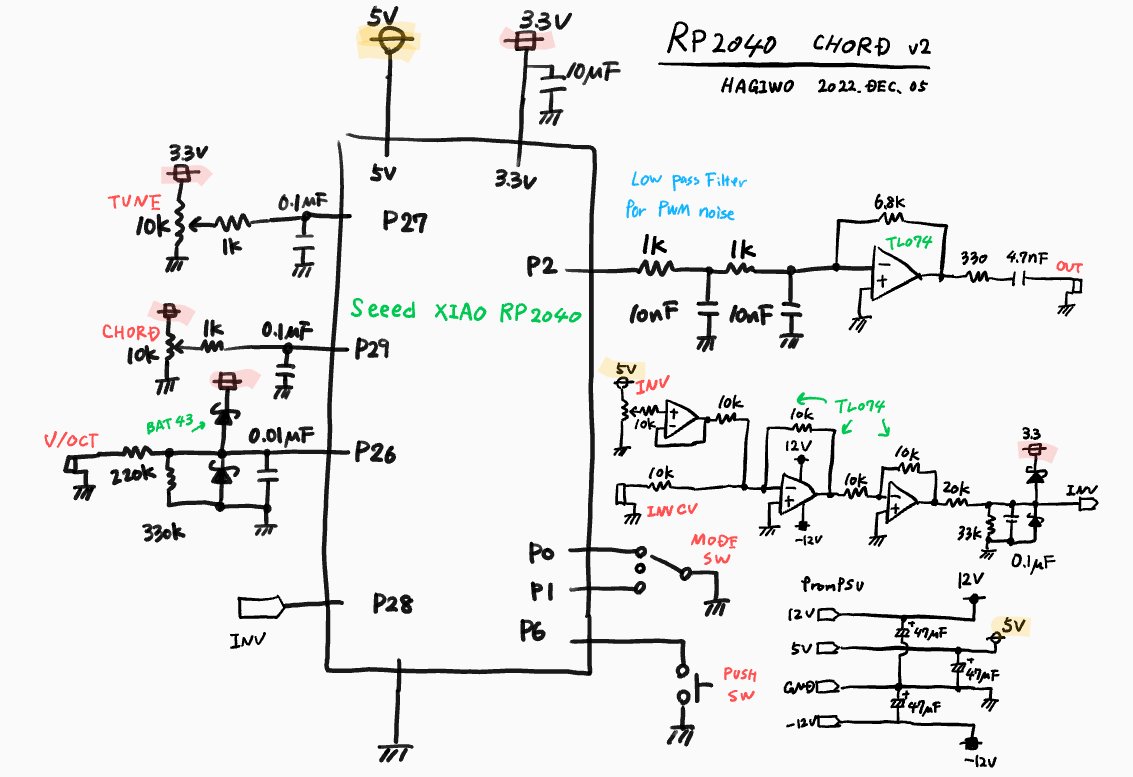 RP2040 CHORD v2
HAGIWO 2022.DEC.05
5V
3.3V
10μF
5V
3.3V
3.3V
TUNE
10k
1k
0.1μF
P27
CHORD
10k
1k
0.1μF
P29
Seeed XIAO RP2040
V/OCT
BAT43
220k
330k
0.01μF
P26
INV
P28
P2
Low pass Filter
For PWM noise
1k
1k
10nF
10nF
6.8k
TL074
-
+
330
4.7nF
OUT
5V
INV
10k
+
-
10k
10k
INV CV
TL074
10k
12V
-
+
-12V
10k
10k
-
+
20k
33k
0.1μF
3.3
INV
P0
P1
MODE
SW
P6
PUSH
SW
From PSU
12V
12V
+
47μF
5V
5V
+
47μF
GND
+
47μF
-12V
-12V